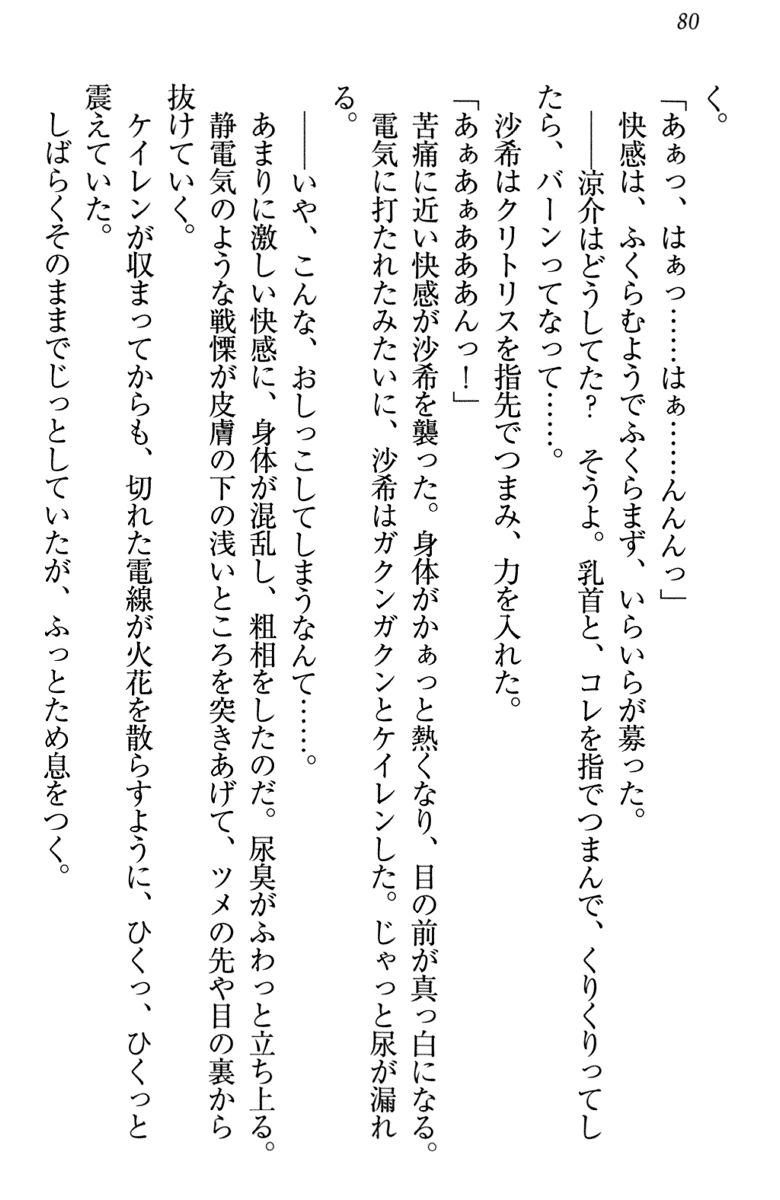 80
く。
「あぁっ、はぁっ……はぁ……んんんっ」
快感は、ふくらむようでふくらまず、いらいらが募った。
――涼介はどうしてた?　そうよ。乳首と、コレを指でつまんで、くりくりってし
たら、バーンってなって……。
沙希はクリトリスを指先でつまみ、力を入れた。
「あぁあぁあああんっ!」
苦痛に近い快感が沙希を襲った。身体がかぁっと熱くなり、目の前が真っ白になる。
電気に打たれたみたいに、沙希はガクンガクンとケイレンした。じゃっと尿が漏れ
る。
――いや、こんな、おしっこしてしまうなんて……。
あまりに激しい快感に、身体が混乱し、粗相をしたのだ。尿臭がふわっと立ち上る。
静電気のような戦慄が皮膚の下の浅いところを突きあげて、ツメの先や目の裏から
抜けていく。
ケイレンが収まってからも、切れた電線が火花を散らすように、ひくっ、ひくっと
震えていた。
しばらくそのままでじっとしていたが、ふっとため息をつく。